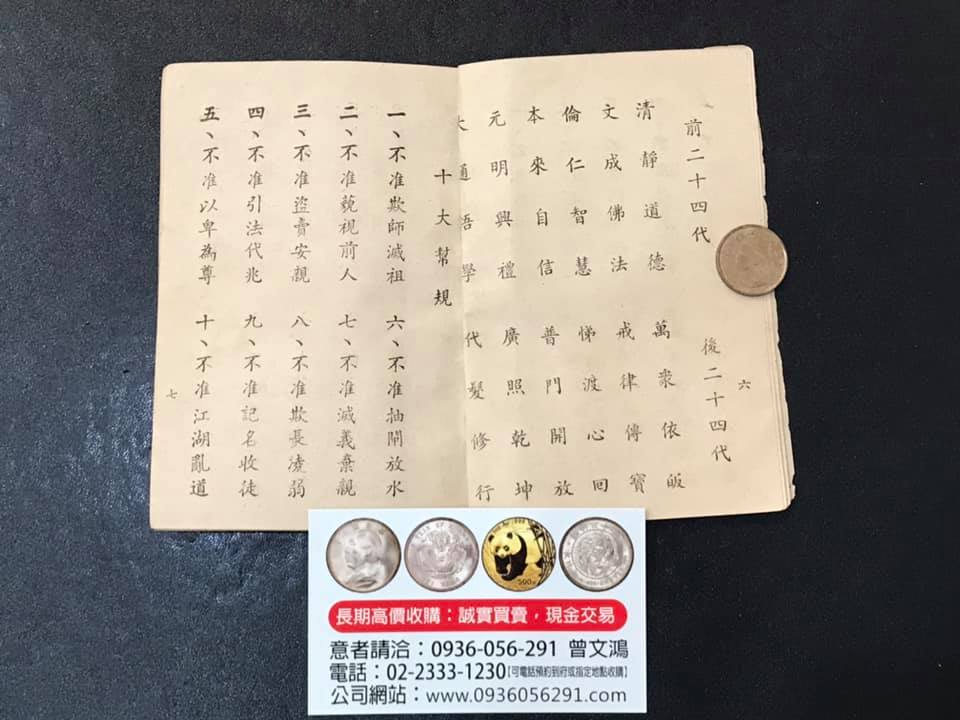 前二十四代 後二十四代
六
清靜道德 萬衆依皈
文成佛法 戒律傳寶
倫仁智慧 悌渡心回
本來自信 普門開放
元明興禮 廣照乾坤
大通悟學 代髮修行
十大幫規
一、不准欺師滅祖 六、不准抽閘放水
二、不准藐視前人 七、不准滅義棄親
三、不准盜賣安親 八、不准欺長凌弱
四、不准引法代兆 九、不准記名收徒
五、不准以卑為尊 十、不准江湖亂道
七
長期高價收購：誠實買賣，現金交易
意者請洽：0936-056-291 曾文鴻
電話：02-2333-1230【可電話預約到府或指定地點收購】
公司網站：www.0936056291.com